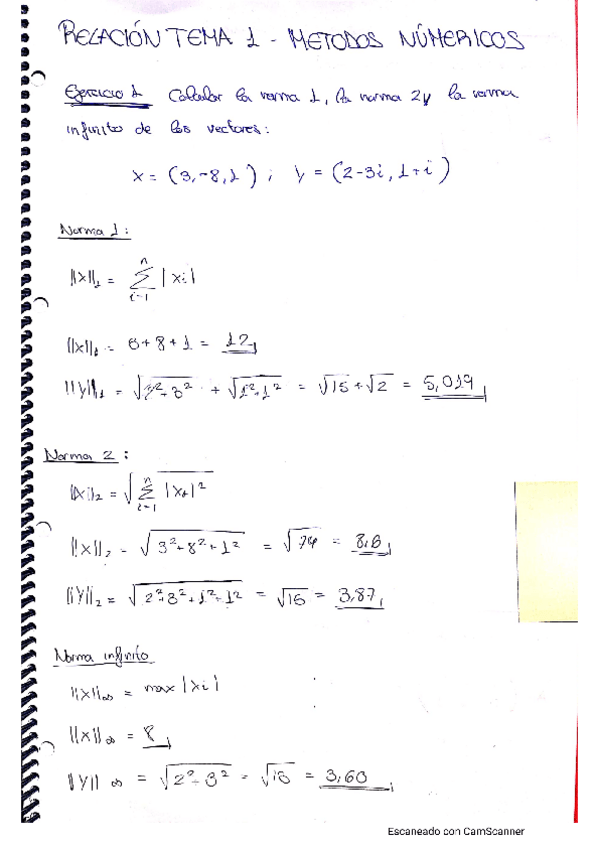 RELACIÓN TEMA 1 - METODOS NÚMERICOS
Ejercicio 1 Calcular la norma 1, la norma 2 y la norma
infinito de los vectores:
x = (3,-8,1) ; y = (2-3i, 1+i)
Norma 1:
||x||₁ = Σ |xi|
n
i=1
||x||₁ = 3+8+1 = 12
||y||₁ = √2²+3² + √1²+1² = √15+√2 = 5,019
Norma 2:
||x||₂ = √Σ |xi|²
n
i=1
||x||₂ = √3²+8²+1² = √74 = 8,6
||y||₂ = √2²+3²+1²+1² = √15 = 3,87
Norma infinito
||x||∞ = max |xi|
||x||∞ = 8
||y||∞ = √2²+3² = √13 = 3,60
Escaneado con CamScanner